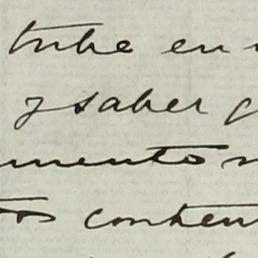 tube en
y saber
mento
conten